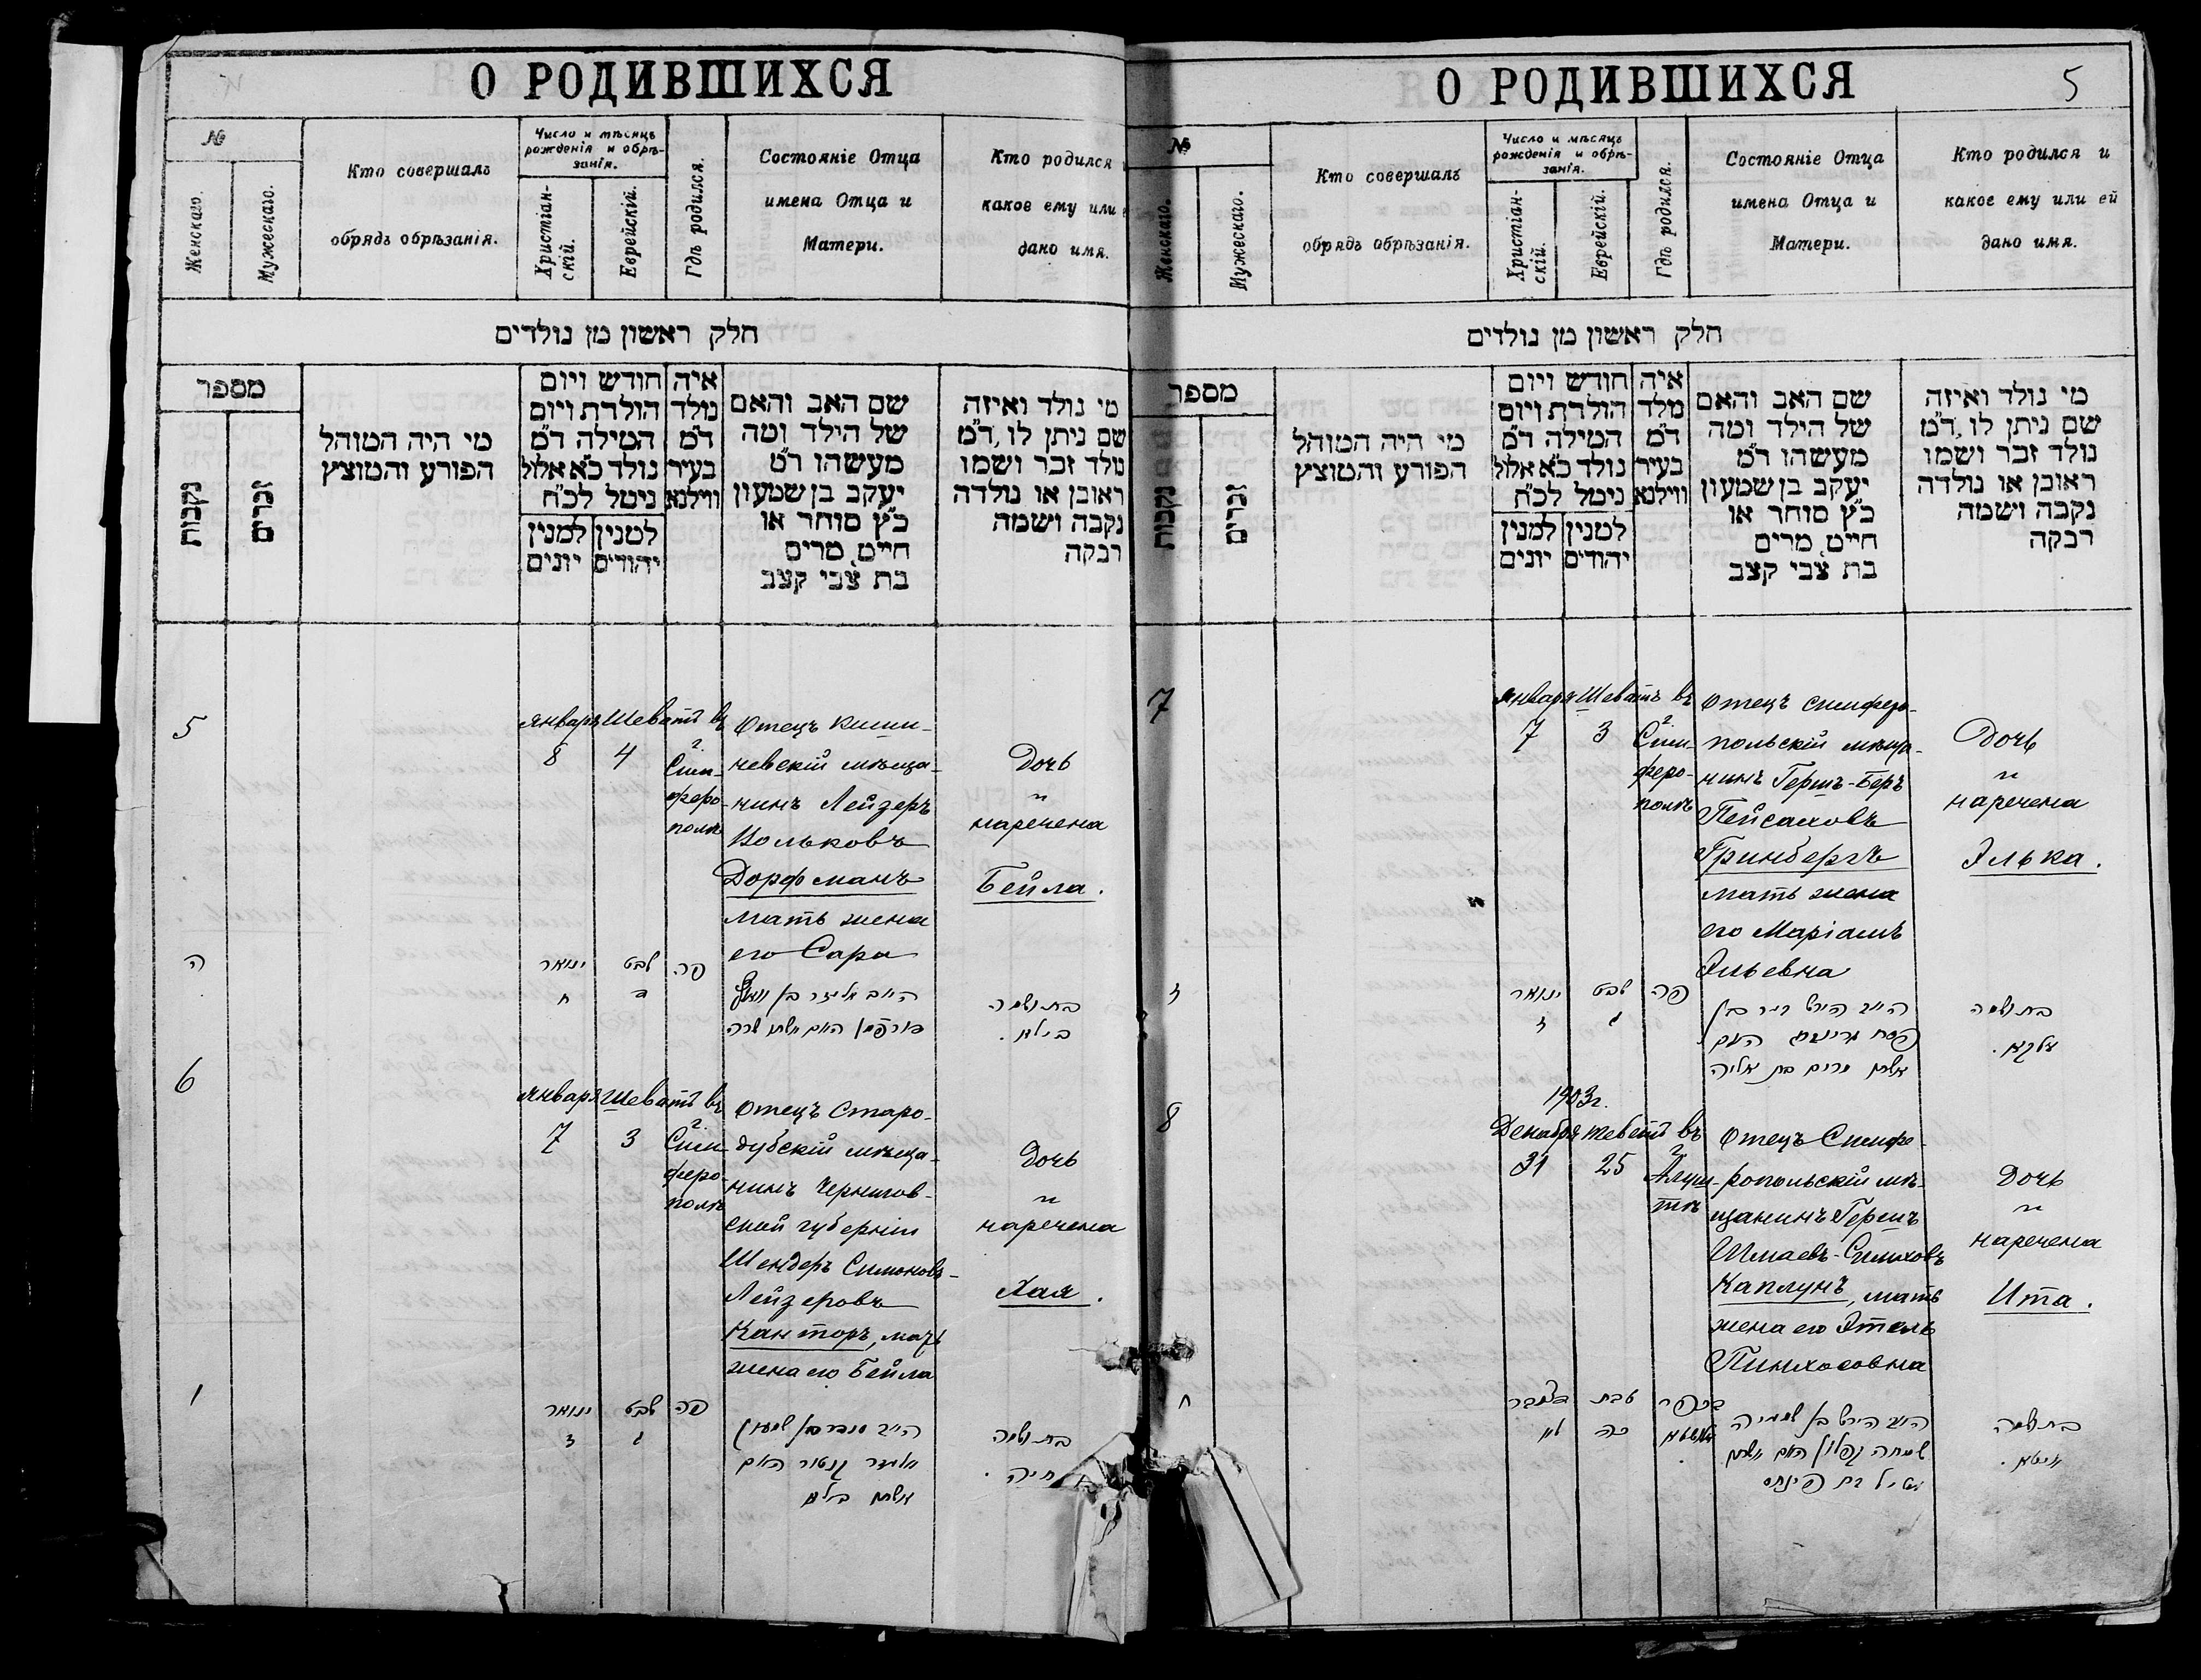 О РОДИВШИХСЯ
№
Женскаго.
Мужескаго.
Кто совершалъ
обрядъ обрѣзанія.
Число и мѣсяцъ
рожденія и обрѣ-
занія.
Христіан-
скій.
Еврейскій.
Гдѣ родился.
Состояніе Отца
имена Отца и
Матери.
Кто родился
какое ему или
дано имя.
חלק ראשון מן נולדים
מספר
נקבות
זכרים
מי היה המוהל
הפורע והמוצץ
חודש ויום
הולדת ויום
המילה ד״מ
נולד כ״א אלול
ניטל לכ״ח
למנין
יהודים
למנין
יונים
איה
נולד
ד״מ
בעיר
ווילנא
שם האב והאם
של הילד ומה
מעשהו ד״מ
יעקב בן שמעון
כ״ץ סוחר או
חייט, מרים
בת צבי קצב
מי נולד ואיזה
שם ניתן לו, ד״מ
נולד זכר ושמו
ראובן או נולדה
נקבה ושמה
רבקה
5
Января Шеватъ въ
8 4
г.
Сим-
феро-
полѣ
Отецъ Киши-
невскій мѣща-
нинъ Лейзеръ
Вольковъ
Дорфманъ
мать жена
его Сара
Дочь
"
наречена
Бейла.
ה
ינואר שבט פה
ח ד
דורפמן האם אשתו שרה
בת ושמה
בילא.
6
Января Шеватъ въ
7 3
г.
Сим-
феро-
полѣ
Отецъ Старо-
дубскій мѣща-
нинъ Чернигов-
ской губерніи
Шендеръ Симоновъ-
Лейзеровъ
Канторъ, мать
жена его Бейла
Дочь
"
наречена
Хая.
ו
ינואר שבט פה
ז ג
אליעזר קנטור האם
אשתו בילא
בת ושמה
חיה.
О РОДИВШИХСЯ
5
№
Женскаго.
Мужескаго.
Кто совершалъ
обрядъ обрѣзанія.
Число и мѣсяцъ
рожденія и обрѣ-
занія.
Христіан-
скій.
Еврейскій.
Гдѣ родился.
Состояніе Отца
имена Отца и
Матери.
Кто родился и
какое ему или ей
дано имя.
חלק ראשון מן נולדים
מספר
נקבות
זכרים
מי היה המוהל
הפורע והמוצץ
חודש ויום
הולדת ויום
המילה ד״מ
נולד כ״א אלול
ניטל לכ״ח
למנין
יהודים
למנין
יונים
איה
מלד
ד״מ
בעיר
ווילנא
שם האב והאם
של הילד ומה
מעשהו ד״מ
יעקב בן שמעון
כ״ץ סוחר או
חייט, מרים
בת צבי קצב
מי נולד ואיזה
שם ניתן לו, ד״מ
נולד זכר ושמו
ראובן או נולדה
נקבה ושמה
רבקה
7
Января Шеватъ въ
7 3
г.
Сим-
феро-
полѣ
Отецъ симферо-
польскій мѣща-
нинъ Гершъ-Беръ
Пейсаховъ
Гринбергъ
мать жена
его Маріамъ
Эльевна
Дочь
"
наречена
Элька.
ז
ינואר שבט פה
ז ג
פסח גרינבערג האם
אשתו מרים בת אליה
בת ושמה
עלקא.
8
1903г.
Декабря Теветъ въ
31 25
г.
Алуш-
тѣ
Отецъ Симфе-
ропольскій мѣ-
щанинъ Гершъ
Шмаевъ-Симховъ
Каплунъ, мать
жена его Этель
Пинхосовна
Дочь
"
наречена
Ита.
ח
דצמבר טבת בכפר
לא כה אלושטא
האב הירש בן שמעיה
שמחה קפלון האם אשתו
עטיל בת פינחס
בת ושמה
איטא.